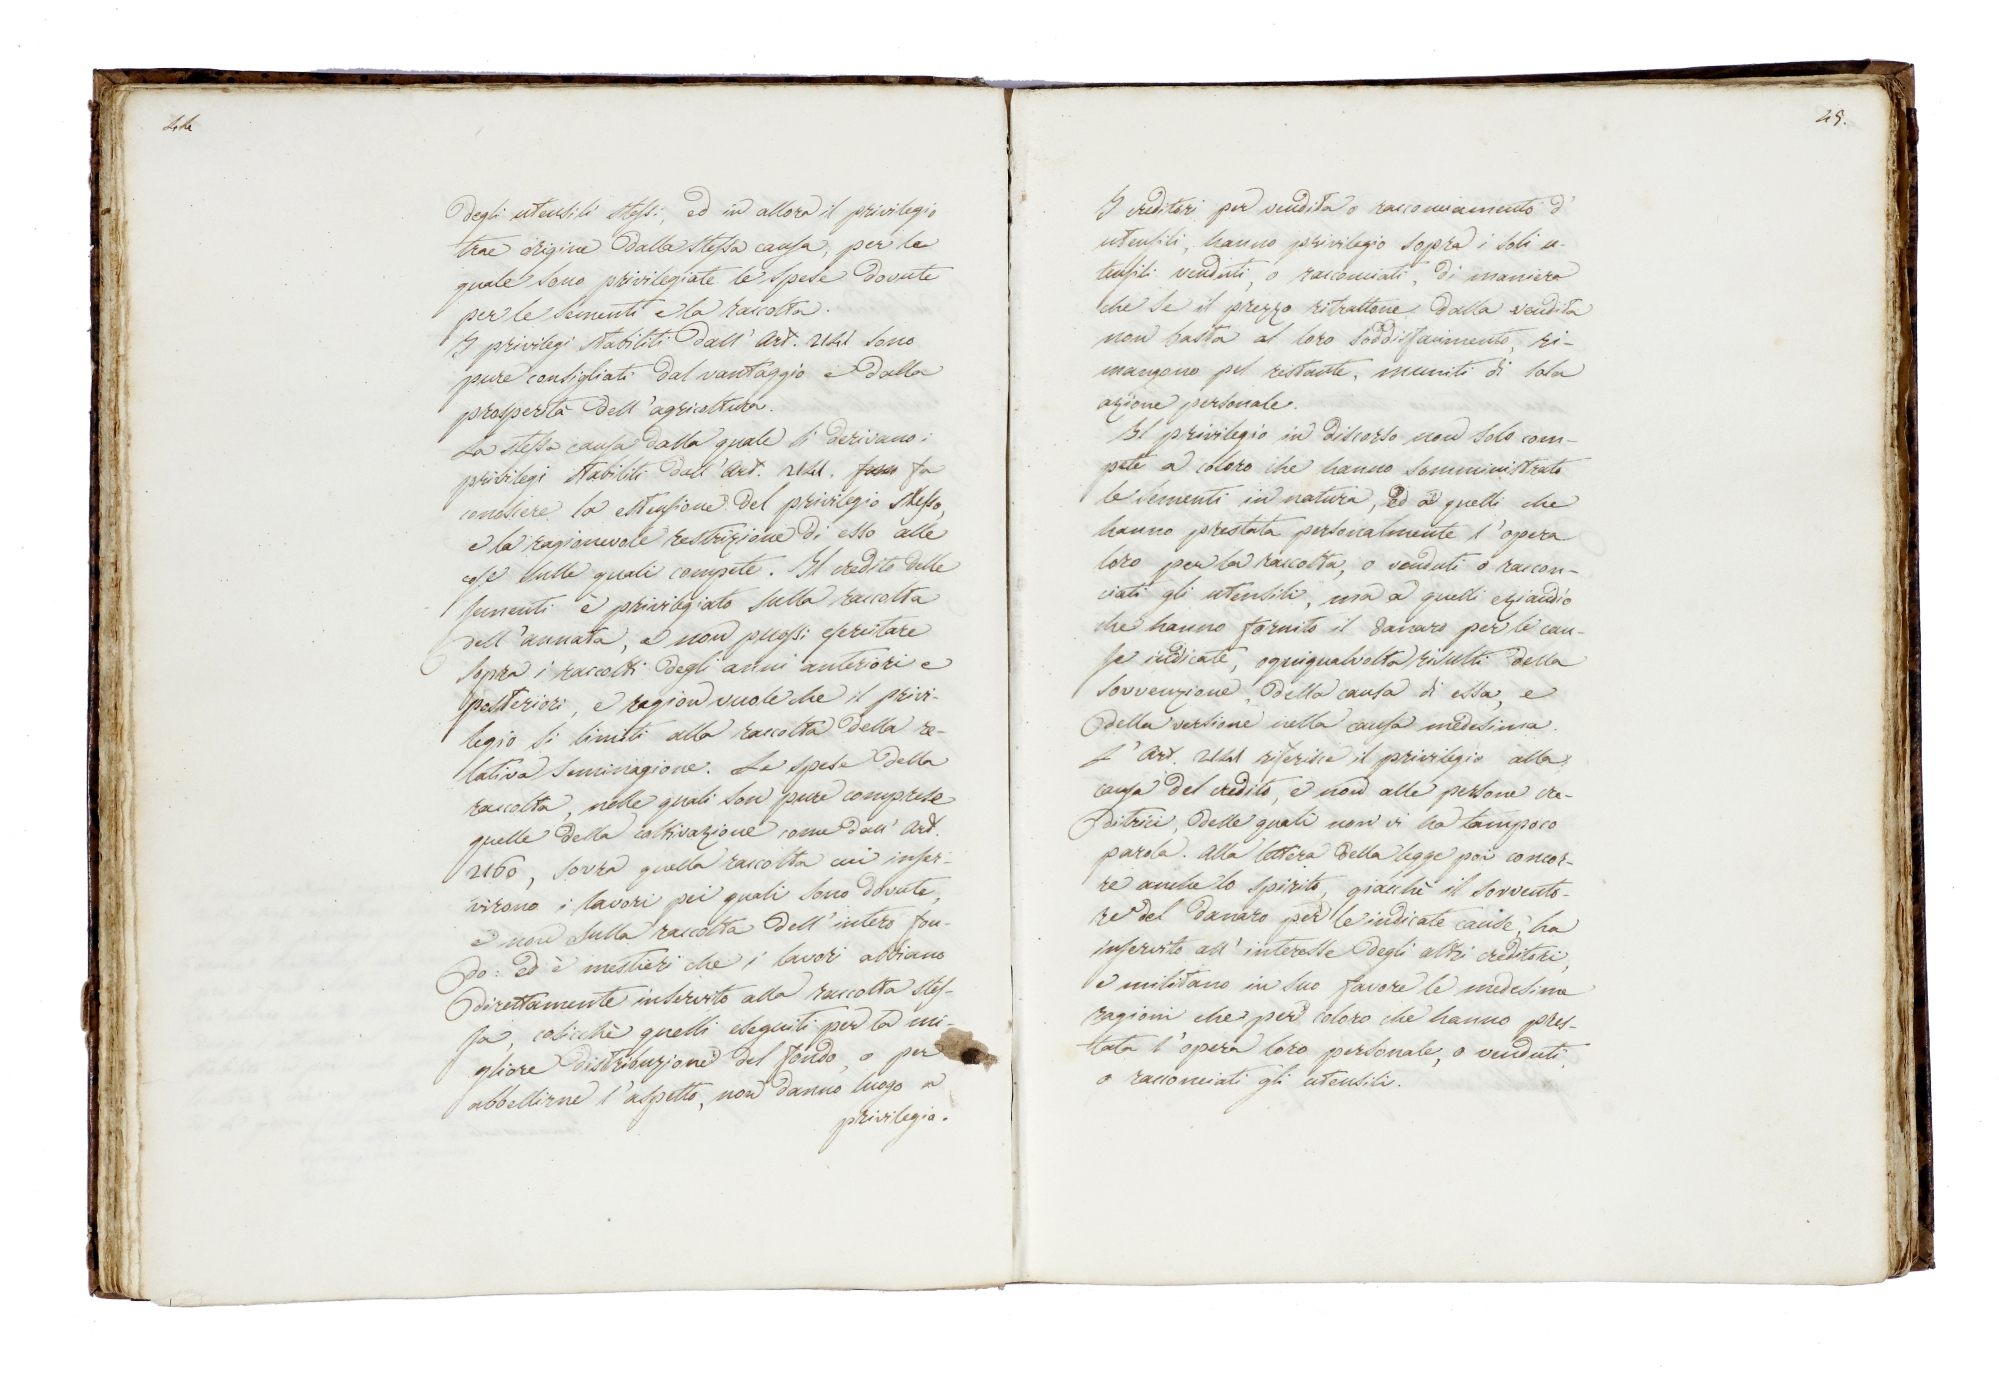 44
degli utensili stessi, ed in allora il privilegio
trae origine dalla stessa causa, per la
quale sono privilegiate le spese dovute
per le sementi e la raccolta.
I privilegi stabiliti dall'Art. 2141 sono
pure consigliati dal vantaggio e dalla
prosperità dell'agricoltura.
La stessa causa dalla quale si derivano i
privilegi stabiliti dall'Art. 2141. fa
conoscere la estensione del privilegio stesso,
e la ragionevole restrizione di esso alle
cose sulle quali compete. Il credito delle
sementi è privilegiato sulla raccolta
dell'annata, e non puossi esercitare
sopra i raccolti degli anni anteriori e
posteriori, e ragion vuole che il privi-
legio si limiti alla raccolta della re-
lativa seminagione. Le spese della
raccolta, nelle quali son pure comprese
quelle della coltivazione come dall'Art.
2160, sovra quella raccolta cui inser-
virono i lavori pei quali sono dovute,
e non sulla raccolta dell'intero fon-
do: ed è mestieri che i lavori abbiano
direttamente inservito alla raccolta stes-
sa, cosicchè quelli eseguiti per la mi-
gliore distribuzione del fondo, o per
abbellirne l'aspetto, non danno luogo a
privilegio.
45.
I creditori per vendita o racconciamento d'
utensili, hanno privilegio sopra i soli u-
tensili venduti, o racconciati, di maniera
che se il prezzo ritrattone dalla vendita
non basta al loro soddisfacimento, ri-
mangono pel restante, muniti di sola
azione personale.
Il privilegio in discorso non solo com-
pete a coloro che hanno somministrato
le sementi in natura, ed a quelli che
hanno prestata personalmente l'opera
loro per la raccolta, o venduti o raccon-
ciati gli utensili, ma a quelli eziandio
che hanno fornito il danaro per le cau-
se indicate, ogniqualvolta risulti della
sovvenzione, della causa di essa, e
della versione nella causa medesima.
L'Art. 2141 riferisce il privilegio alla
causa del credito, e non alle persone cre-
ditrici, delle quali non vi ha tampoco
parola. Alla lettera della legge poi concor-
re anche lo spirito, giacchè il sovvento-
re del danaro per le indicate cause, ha
inservito all'interesse degli altri creditori,
e militano in suo favore le medesime
ragioni che per coloro che hanno pres-
tata l'opera loro personale, o venduti,
o racconciati gli utensili.